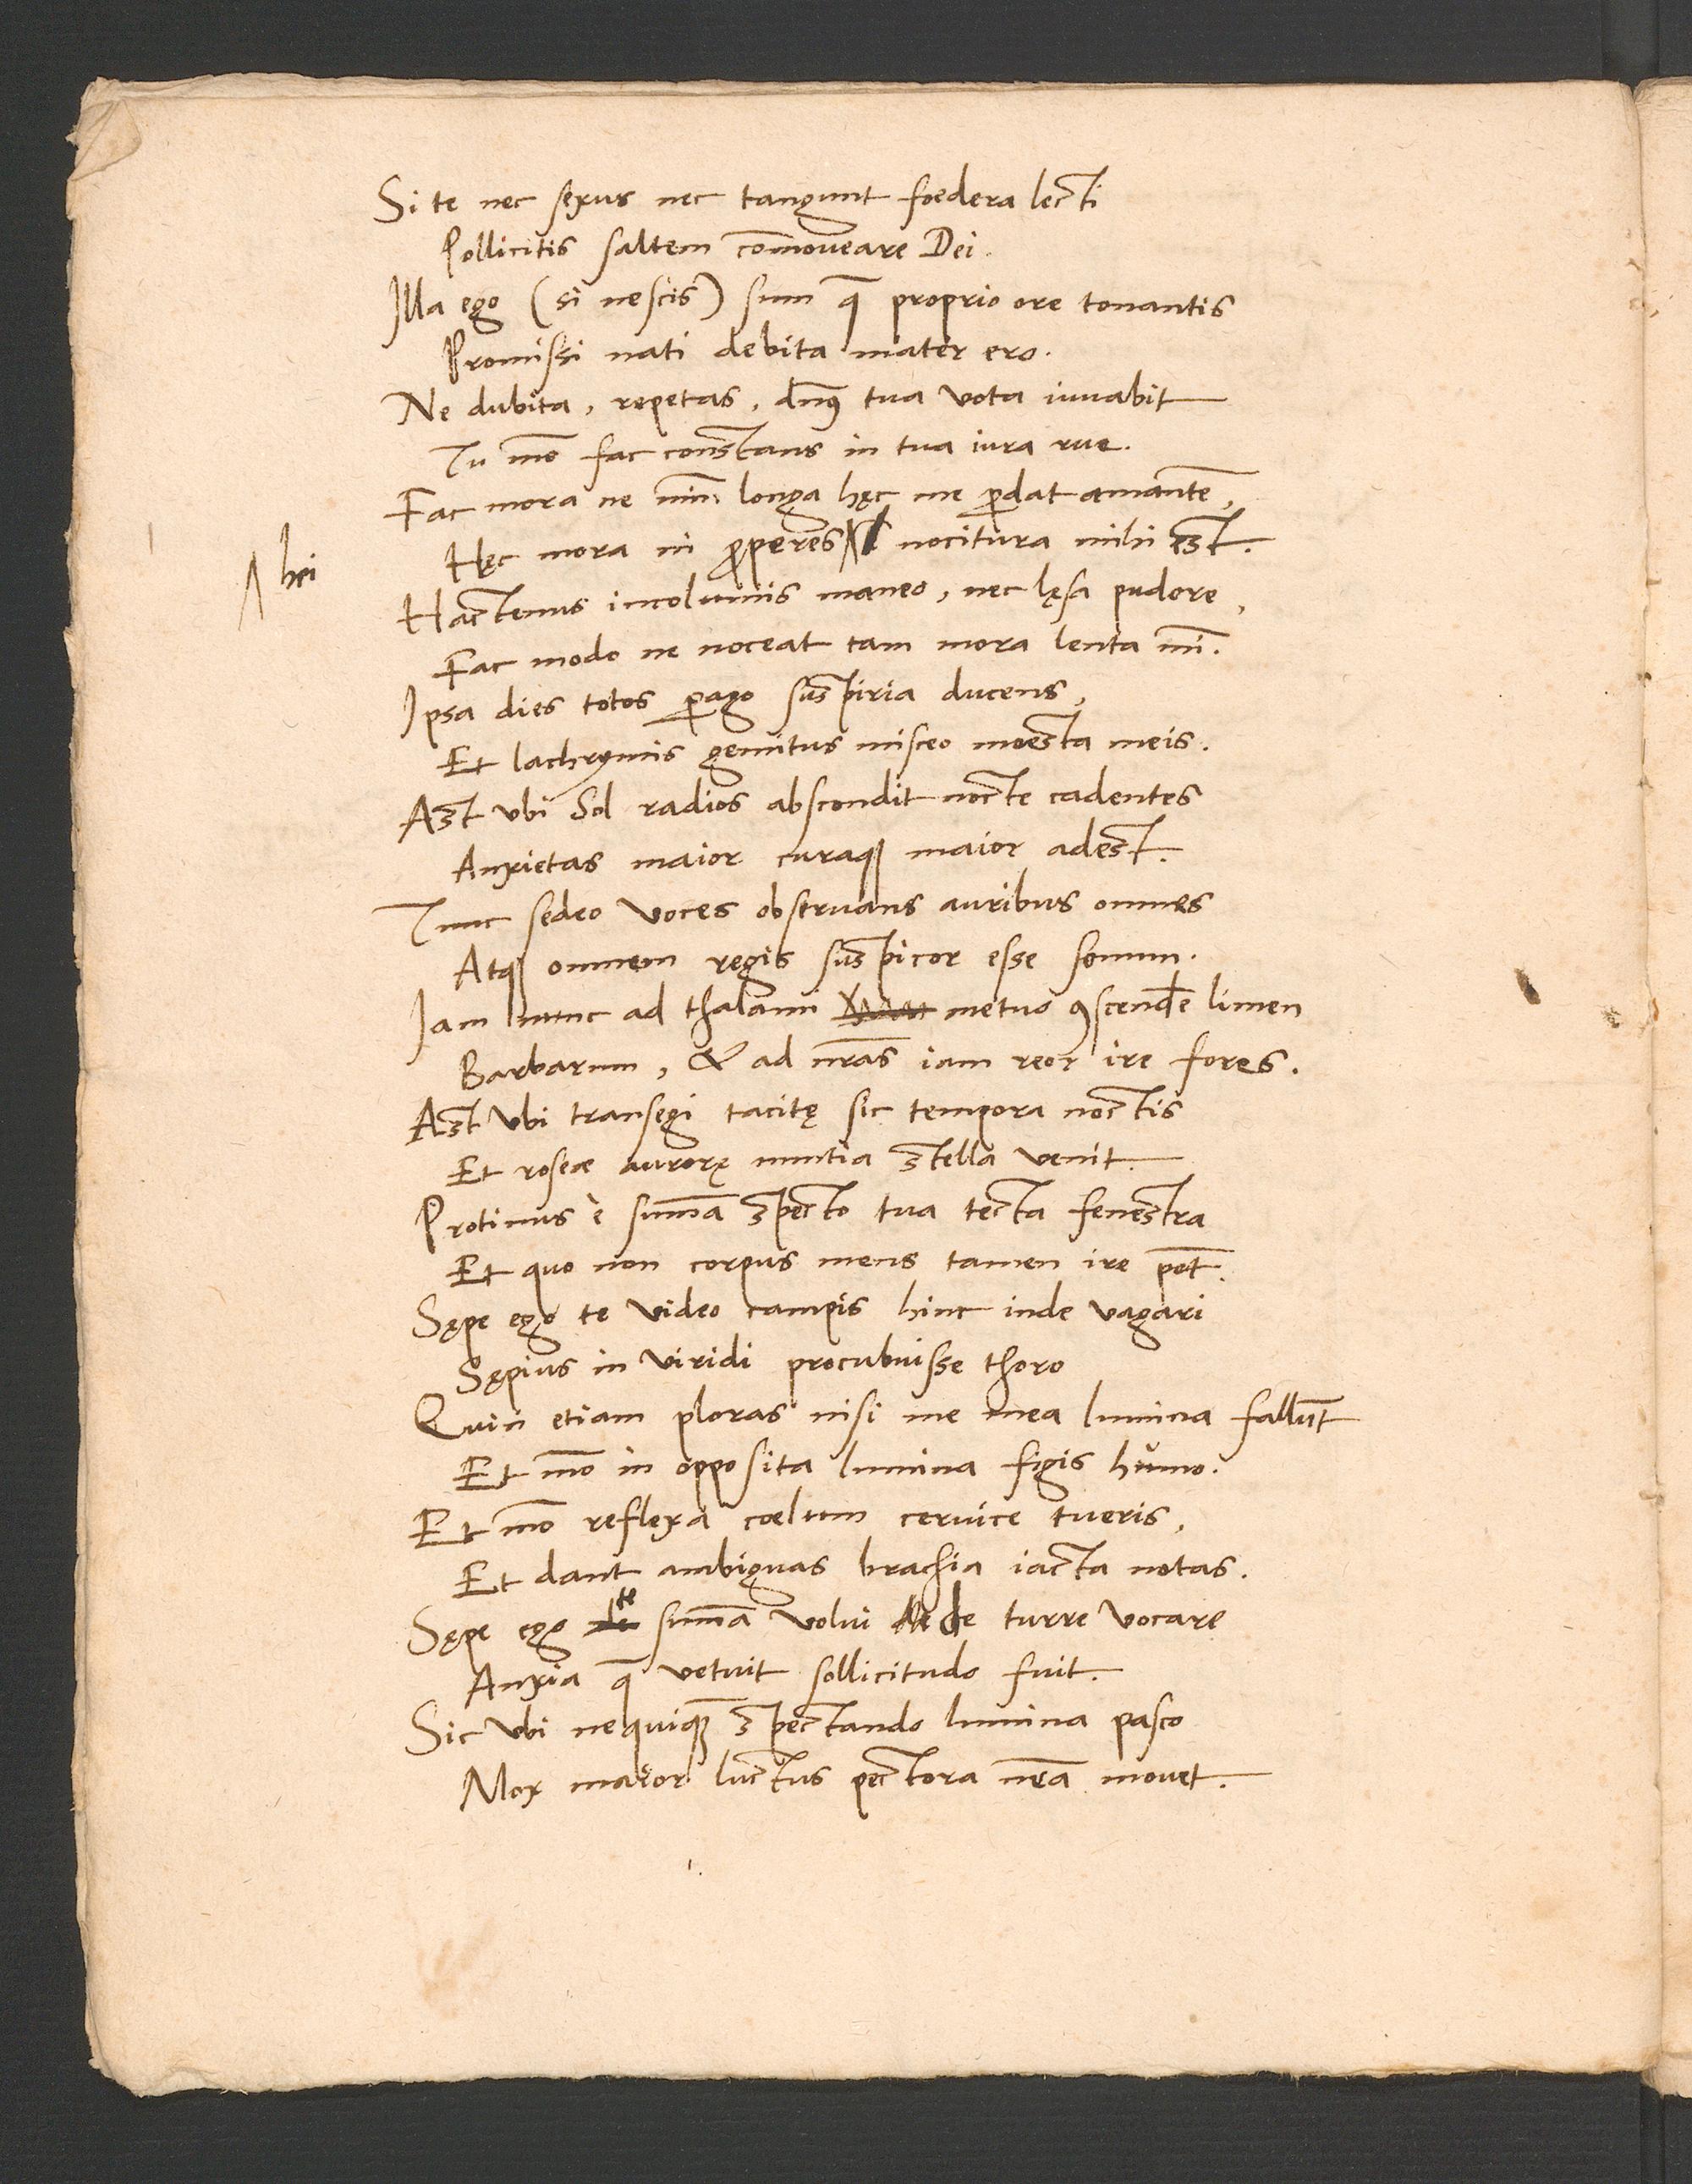 Si te nec sexus nec tangunt foedera lecti
Pollicitis saltem com̄oueare Dei.
Illa ego (si nescis) sum q̄ proprio ore tonantis
Promissi nati debita mater ero.
Ne dubita, repetas, dn̄s tua vota iuuabit
Tu mō fac constans in tua iura rue.
Fac mora ne nim̄ longa hęc me ꝑdat amantē,
Hęc mora ni ꝓperes nocitura mihi est.
hei
Hactenus incolumis maneo, nec lęsa pudore,
Fac modo ne noceat tam mora lenta mī.
Ipsa dies totos ꝑago suspiria ducens,
Et lachrymis gemitus misceo moesta meis.
Ast vbi Sol radios abscondit nocte cadentes
Anxietas maior curaqꝫ maior adest.
Tunc sedeo voces obseruans auribus omnes
Atqꝫ omnem regis suspicor esse sonum.
Iam nunc ad thalami metuo ꝯscendēe limen
Barbarum, & ad nr̄as iam reor ire fores.
Ast vbi transegi tacitę sic tempora noctis
Et roseae aurorę nuntia stella venit.
Protinus è sum̄a specto tua tecta fenestra
Et quo non corpus mens tamen ire pōt.
Sępe ego te video campis hinc inde vagari
Sępius in viridi procubuisse thoro
Quin etiam ploras nisi me mea lumina fallūt
Et mō in opposita lumina figis humo.
Et mō reflexa coelum ceruice tueris,
Et dant ambiguas brachia iacta notas.
Sępe ego te sum̄a volui de turre vocare
Anxia q̄ vetuit sollicitudo fuit.
Sic vbi nequiqꝫ spectando lumina pasco
Mox maior luctus pectora nr̄a mouet.